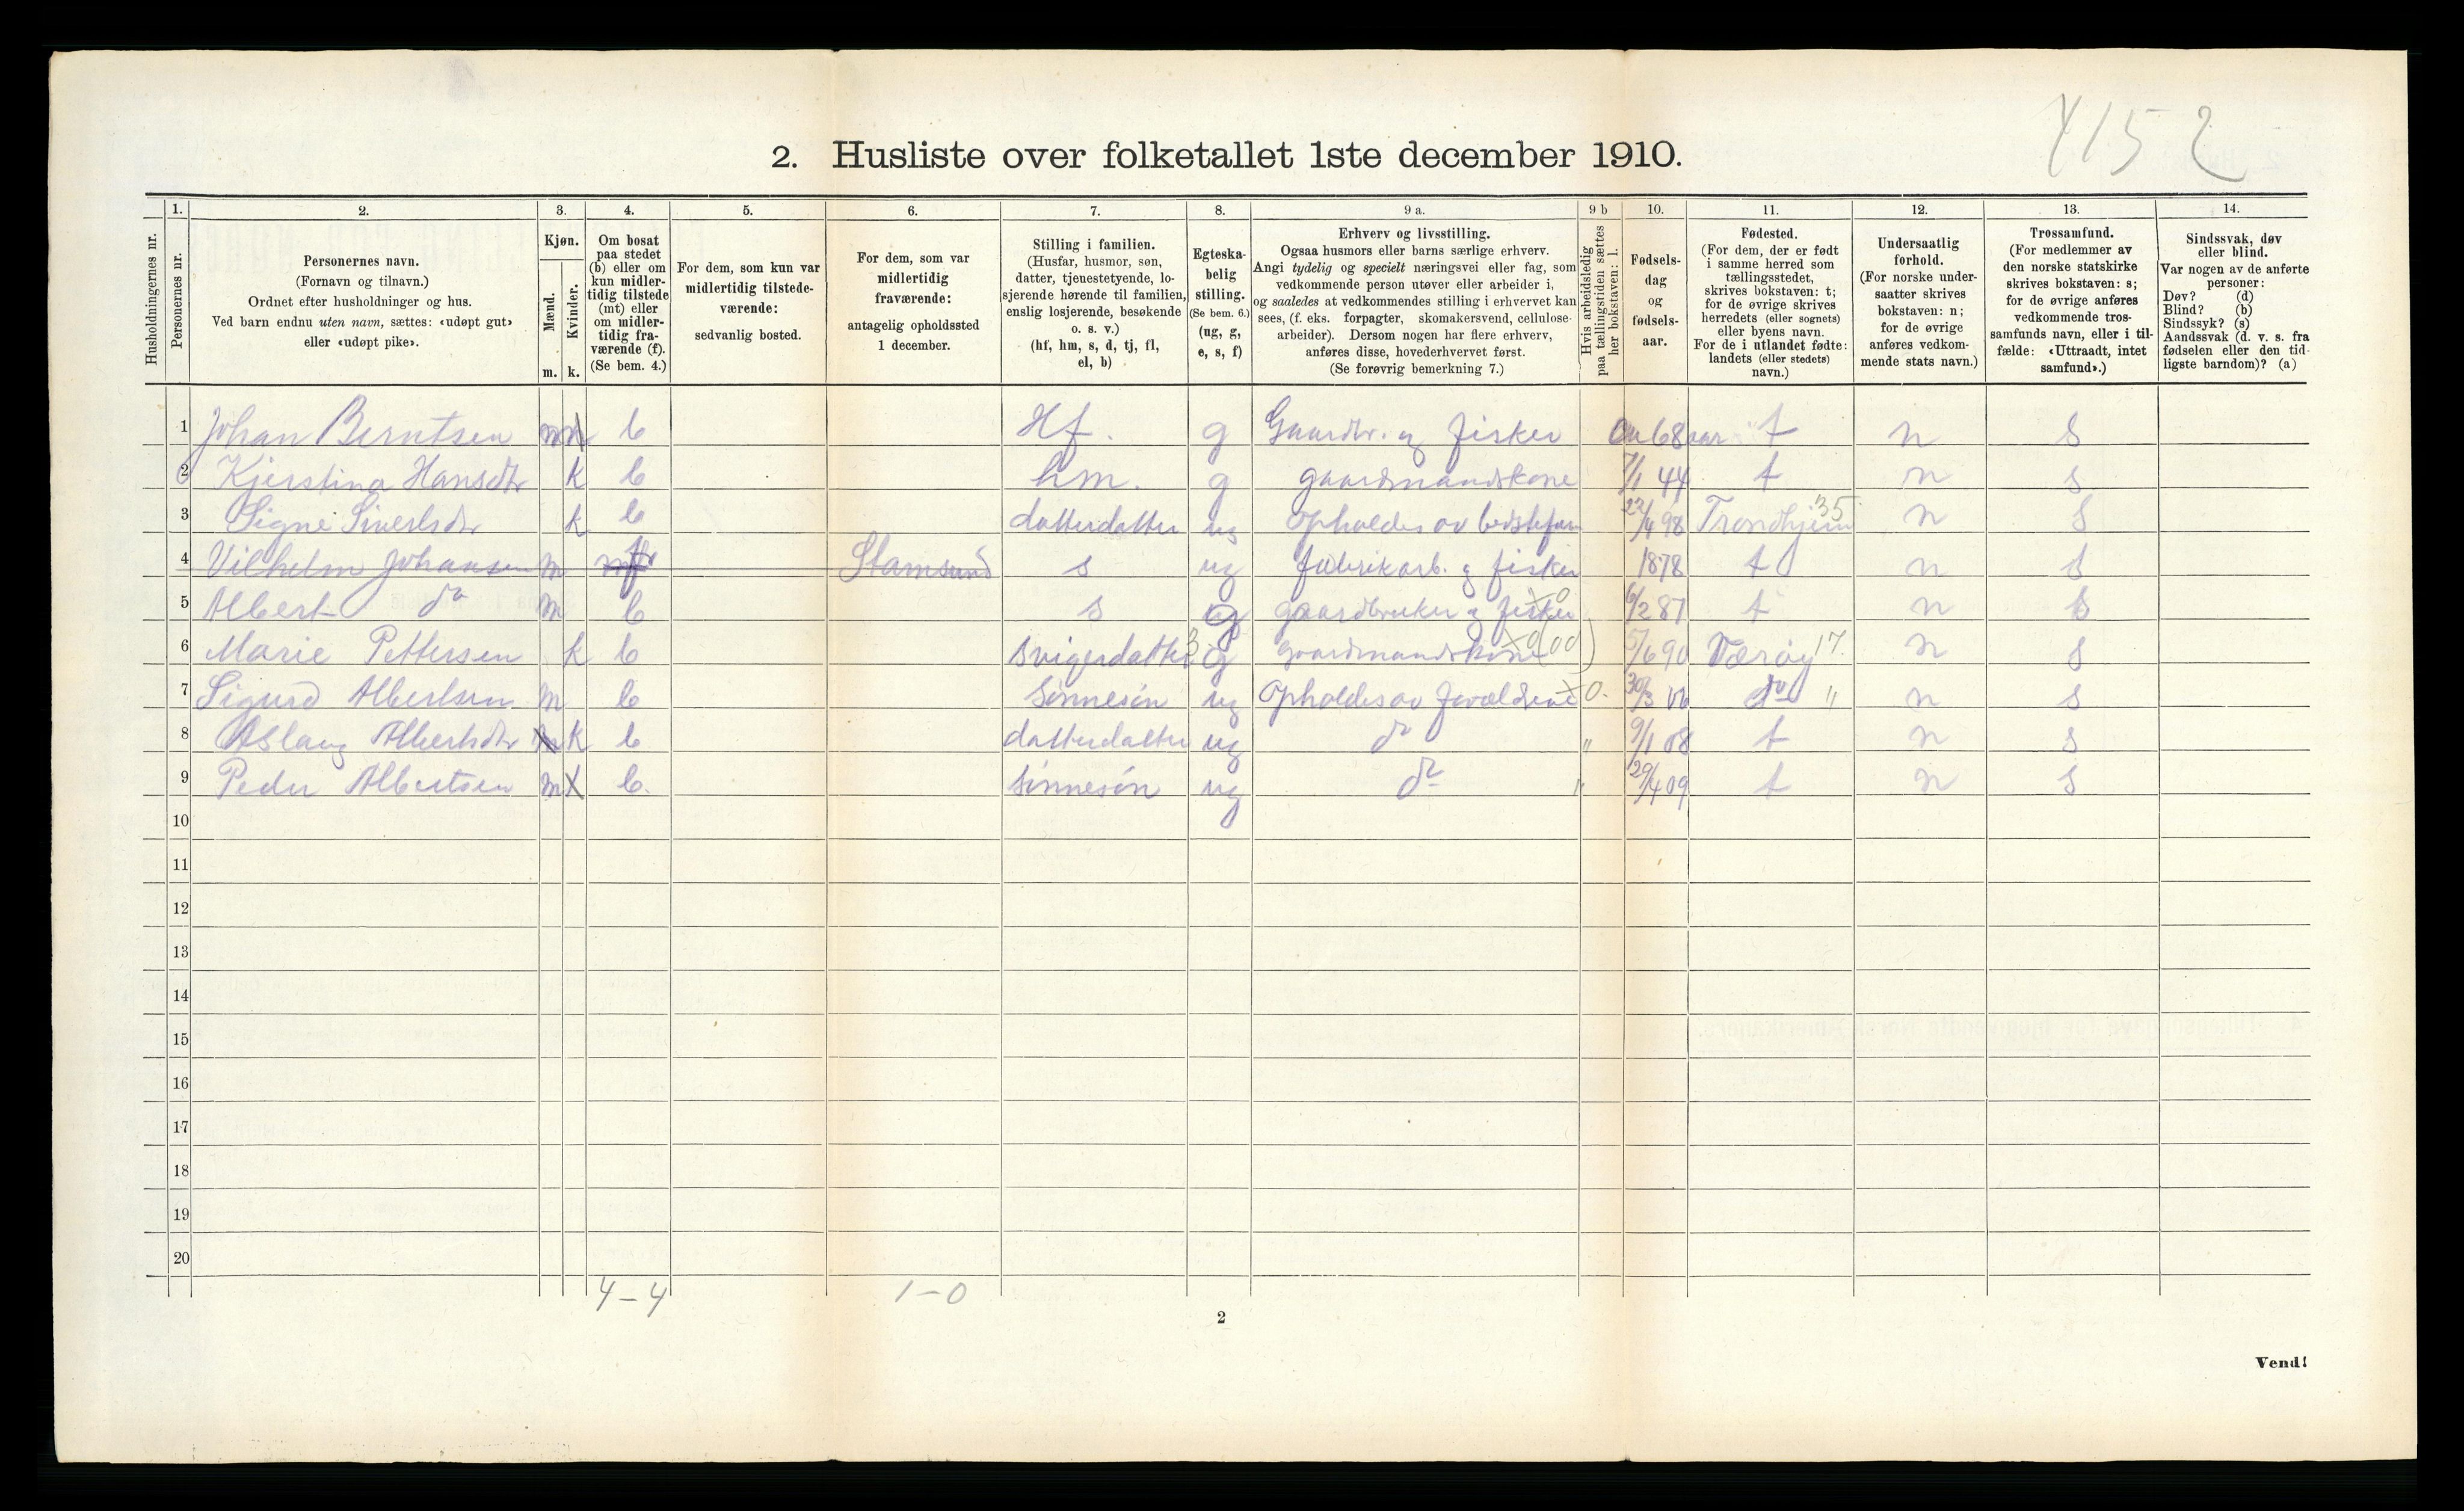 4152
2. Husliste over folketallet 1ste december 1910.
Husholdningernes nr.
1. Personernes nr.
2. Personernes navn. (Fornavn og tilnavn.) Ordnet efter husholdninger og hus. Ved barn endnu uten navn, sættes: «udøpt gut» eller «udøpt pike».
3. Kjøn. Mænd. m. Kvinder. k.
4. Om bosat paa stedet (b) eller om kun midlertidig tilstede (mt) eller om midlertidig fraværende (f). (Se bem. 4.)
5. For dem, som kun var midlertidig tilstedeværende: sedvanlig bosted.
6. For dem, som var midlertidig fraværende: antagelig opholdssted 1 december.
7. Stilling i familien. (Husfar, husmor, søn, datter, tjenestetyende, losjerende hørende til familien, enslig losjerende, besøkende o. s. v.) (hf, hm, s, d, tj, fl, el, b)
8. Egteskabelig stilling. (Se bem. 6.) (ug, g, e, s, f)
9 a. Erhverv og livsstilling. Ogsaa husmors eller barns særlige erhverv. Angi tydelig og specielt næringsvei eller fag, som vedkommende person utøver eller arbeider i, og saaledes at vedkommendes stilling i erhvervet kan sees, (f. eks. forpagter, skomakersvend, cellulosearbeider). Dersom nogen har flere erhverv, anføres disse, hovederhvervet først. (Se forøvrig bemerkning 7.)
9 b Hvis arbeidsledig paa tællingstiden sættes her bokstaven: l.
10. Fødselsdag og fødselsaar.
11. Fødested. (For dem, der er født i samme herred som tællingsstedet, skrives bokstaven: t; for de øvrige skrives herredets (eller sognets) eller byens navn. For de i utlandet fødte: landets (eller stedets) navn.)
12. Undersaatlig forhold. (For norske undersaatter skrives bokstaven: n; for de øvrige anføres vedkommende stats navn.)
13. Trossamfund. (For medlemmer av den norske statskirke skrives bokstaven: s; for de øvrige anføres vedkommende trossamfunds navn, eller i tilfælde: «Uttraadt, intet samfund».)
14. Sindssvak, døv eller blind. Var nogen av de anførte personer: Døv? (d) Blind? (b) Sindssyk? (s) Aandssvak (d. v. s. fra fødselen eller den tidligste barndom)? (a)
1 Johan Berntsen m b Hf. g Gaardbr. og fisker 68 aar t n s
2 Kjerstina Hansdtr k b hm. g gaardmandskone 7/1 44 t n s
3 Signe Siverlsdtr k b datterdatter ug opholdes av bedstefar 22/4 98 Trondhjem 35 n s
4 Vilhelm Johansen m f Stamsund s ug fabrikarb. g fisker 1878 t n s
5 Albert do m b s g gaardbruker g fisker x0 6/2 87 t n s
6 Marie Pettersen k b svigerdatter 3 g Gaardmandskone x0(00) 5/6 90 Værøy 17. n s
7 Sigurd Albertsen m b sønnesøn ug Opholdes av forældrene x0. 30/3 06 do " n s
8 Aslaug Albertsdtr k b datterdatter ug do " 9/1 08 t n s
9 Peder Albertsen m b. sønnesøn ug do " 29/4 09 t n s
10
11
12
13
14
15
16
17
18
19
20
4-4 1-0
2
Vend!